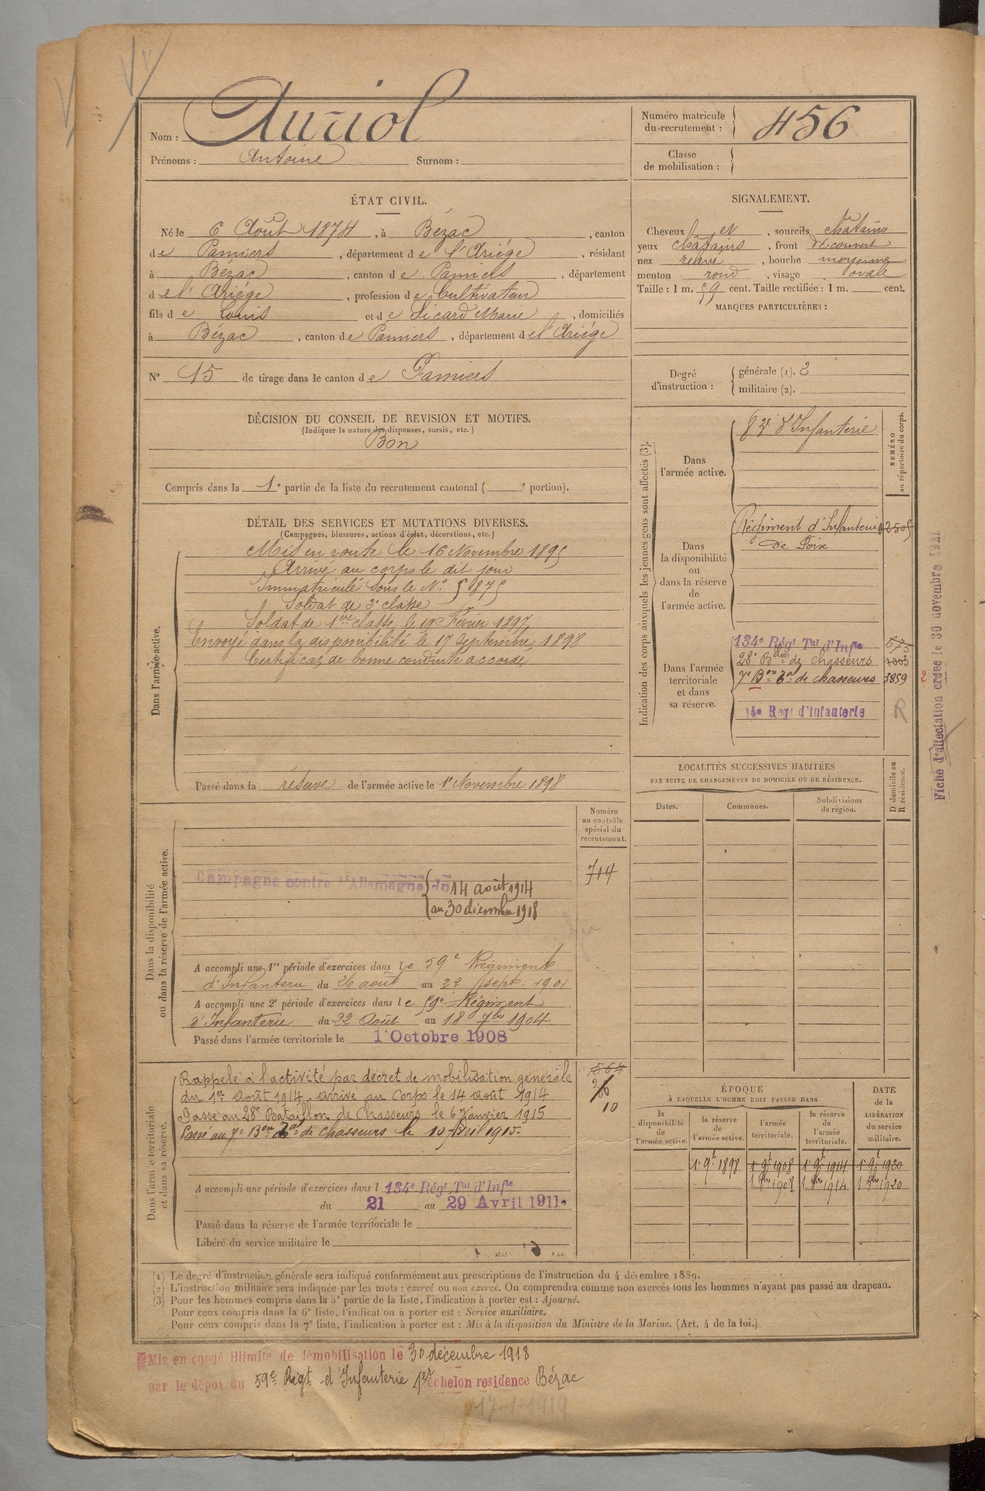 Nom : Auriol
Prénoms : Antoine Surnom :
Numéro matricule du recrutement : 456
Classe de mobilisation :
ÉTAT CIVIL.
Né le 6 Août 1874, à Bézac, canton
de Pamiers, département de l'Ariége, résidant
à Bézac, canton de Pamiers, département
de l'Ariége, profession de Cultivateur
fils de Louis et de Sicard Marie, domiciliés
à Bézac, canton de Pamiers, département de l'Ariége
N° 15 de tirage dans le canton de Pamiers
DÉCISION DU CONSEIL DE REVISION ET MOTIFS.
(Indiquer la nature des dispenses, sursis, etc.)
Bon
Compris dans la 1e partie de la liste du recrutement cantonal ( e portion).
DÉTAIL DES SERVICES ET MUTATIONS DIVERSES.
(Campagnes, blessures, actions d'éclat, décorations, etc.)
Dans l'armée active.
Mis en route le 16 Novembre 1895
Arrivé au corps le dit jour
Immatriculé sous le N°
Soldat de 2e classe
Soldat de 1ère classe le 19 Février 1897
Envoyé dans la disponibilité le 17 Septembre 1898
Certificat de bonne conduite accordé
Passé dans la réserve de l'armée active le 1er Novembre 1898
Dans la disponibilité ou dans la réserve de l'armée active.
Numéro au contrôle spécial du recrutement.
714
Campagne contre l'Allemagne du 14 août 1914
au 30 décembre 1918
A accompli une 1re période d'exercices dans le 59e Régiment
d'Infanterie du 26 août au 22 sept. 1901
A accompli une 2e période d'exercices dans le 59e Régiment
d'Infanterie du 22 Août au 18 7bre 1904
Passé dans l'armée territoriale le 1 Octobre 1908
Dans l'armée territoriale et dans sa réserve.
Rappelé à l'activité par décret de mobilisation générale
du 1er août 1914. Arrivé au Corps le 14 août 1914
Passé au 28e Bataillon de Chasseurs le 6 janvier 1915
Passé au 7e Bon Tal de chasseurs le
A accompli une période d'exercices dans l 134e Régt Tal d'Infie
du 21 au 29 Avril 1911.
Passé dans la réserve de l'armée territoriale le
Libéré du service militaire le
SIGNALEMENT.
Cheveux et, sourcils chatains
yeux chatains, front découvert
nez relevé, bouche moyenne
menton rond, visage ovale
Taille : 1 m. 59 cent. Taille rectifiée : 1 m. cent.
MARQUES PARTICULIÈRES :
Degré d'instruction : générale (1). 3
militaire (2).
Indication des corps auxquels les jeunes gens sont affectés (3).
NUMÉRO au répertoire du corps.
Dans l'armée active.
83e d'Infanterie
Dans la disponibilité ou dans la réserve de l'armée active.
Régiment d'Infanterie
de Foix
Dans l'armée territoriale et dans sa réserve.
134e Régt Tal d'Infie
28e Bon de chasseurs
7e Bon Tal de chasseurs 3859
14e Regt d'Infanterie
R
Fiche d'affectation créée le 30 novembre 1921
LOCALITÉS SUCCESSIVES HABITÉES
PAR SUITE DE CHANGEMENTS DE DOMICILE OU DE RÉSIDENCE.
D domicile ou R résidence.
Dates. Communes. Subdivisions de région.
ÉPOQUE
À LAQUELLE L'HOMME DOIT PASSER DANS
DATE de la LIBÉRATION du service militaire.
la disponibilité de l'armée active. la réserve de l'armée active. l'armée territoriale. la réserve de l'armée territoriale.
1er 9bre 1898 1er 9bre 1908 1er 9bre 1914 1er 9bre 1920
1 8bre 1908 1 8bre 1914 1 8bre 1920
(1) Le degré d'instruction générale sera indiqué conformément aux prescriptions de l'instruction du 4 décembre 1889.
(2) L'instruction militaire sera indiquée par les mots : exercé ou non exercé. On comprendra comme non exercés tous les hommes n'ayant pas passé au drapeau.
(3) Pour les hommes compris dans la 5e partie de la liste, l'indication à porter est : Ajourné.
Pour ceux compris dans la 6e liste, l'indication à porter est : Service auxiliaire.
Pour ceux compris dans la 7e liste, l'indication à porter est : Mis à la disposition du Ministre de la Marine. (Art. 4 de la loi.)
Mis en congé illimité de démobilisation le 30 décembre 1918
par le dépôt du 59e Régt d'Infanterie 1er échelon résidence Bézac
17-1-1919